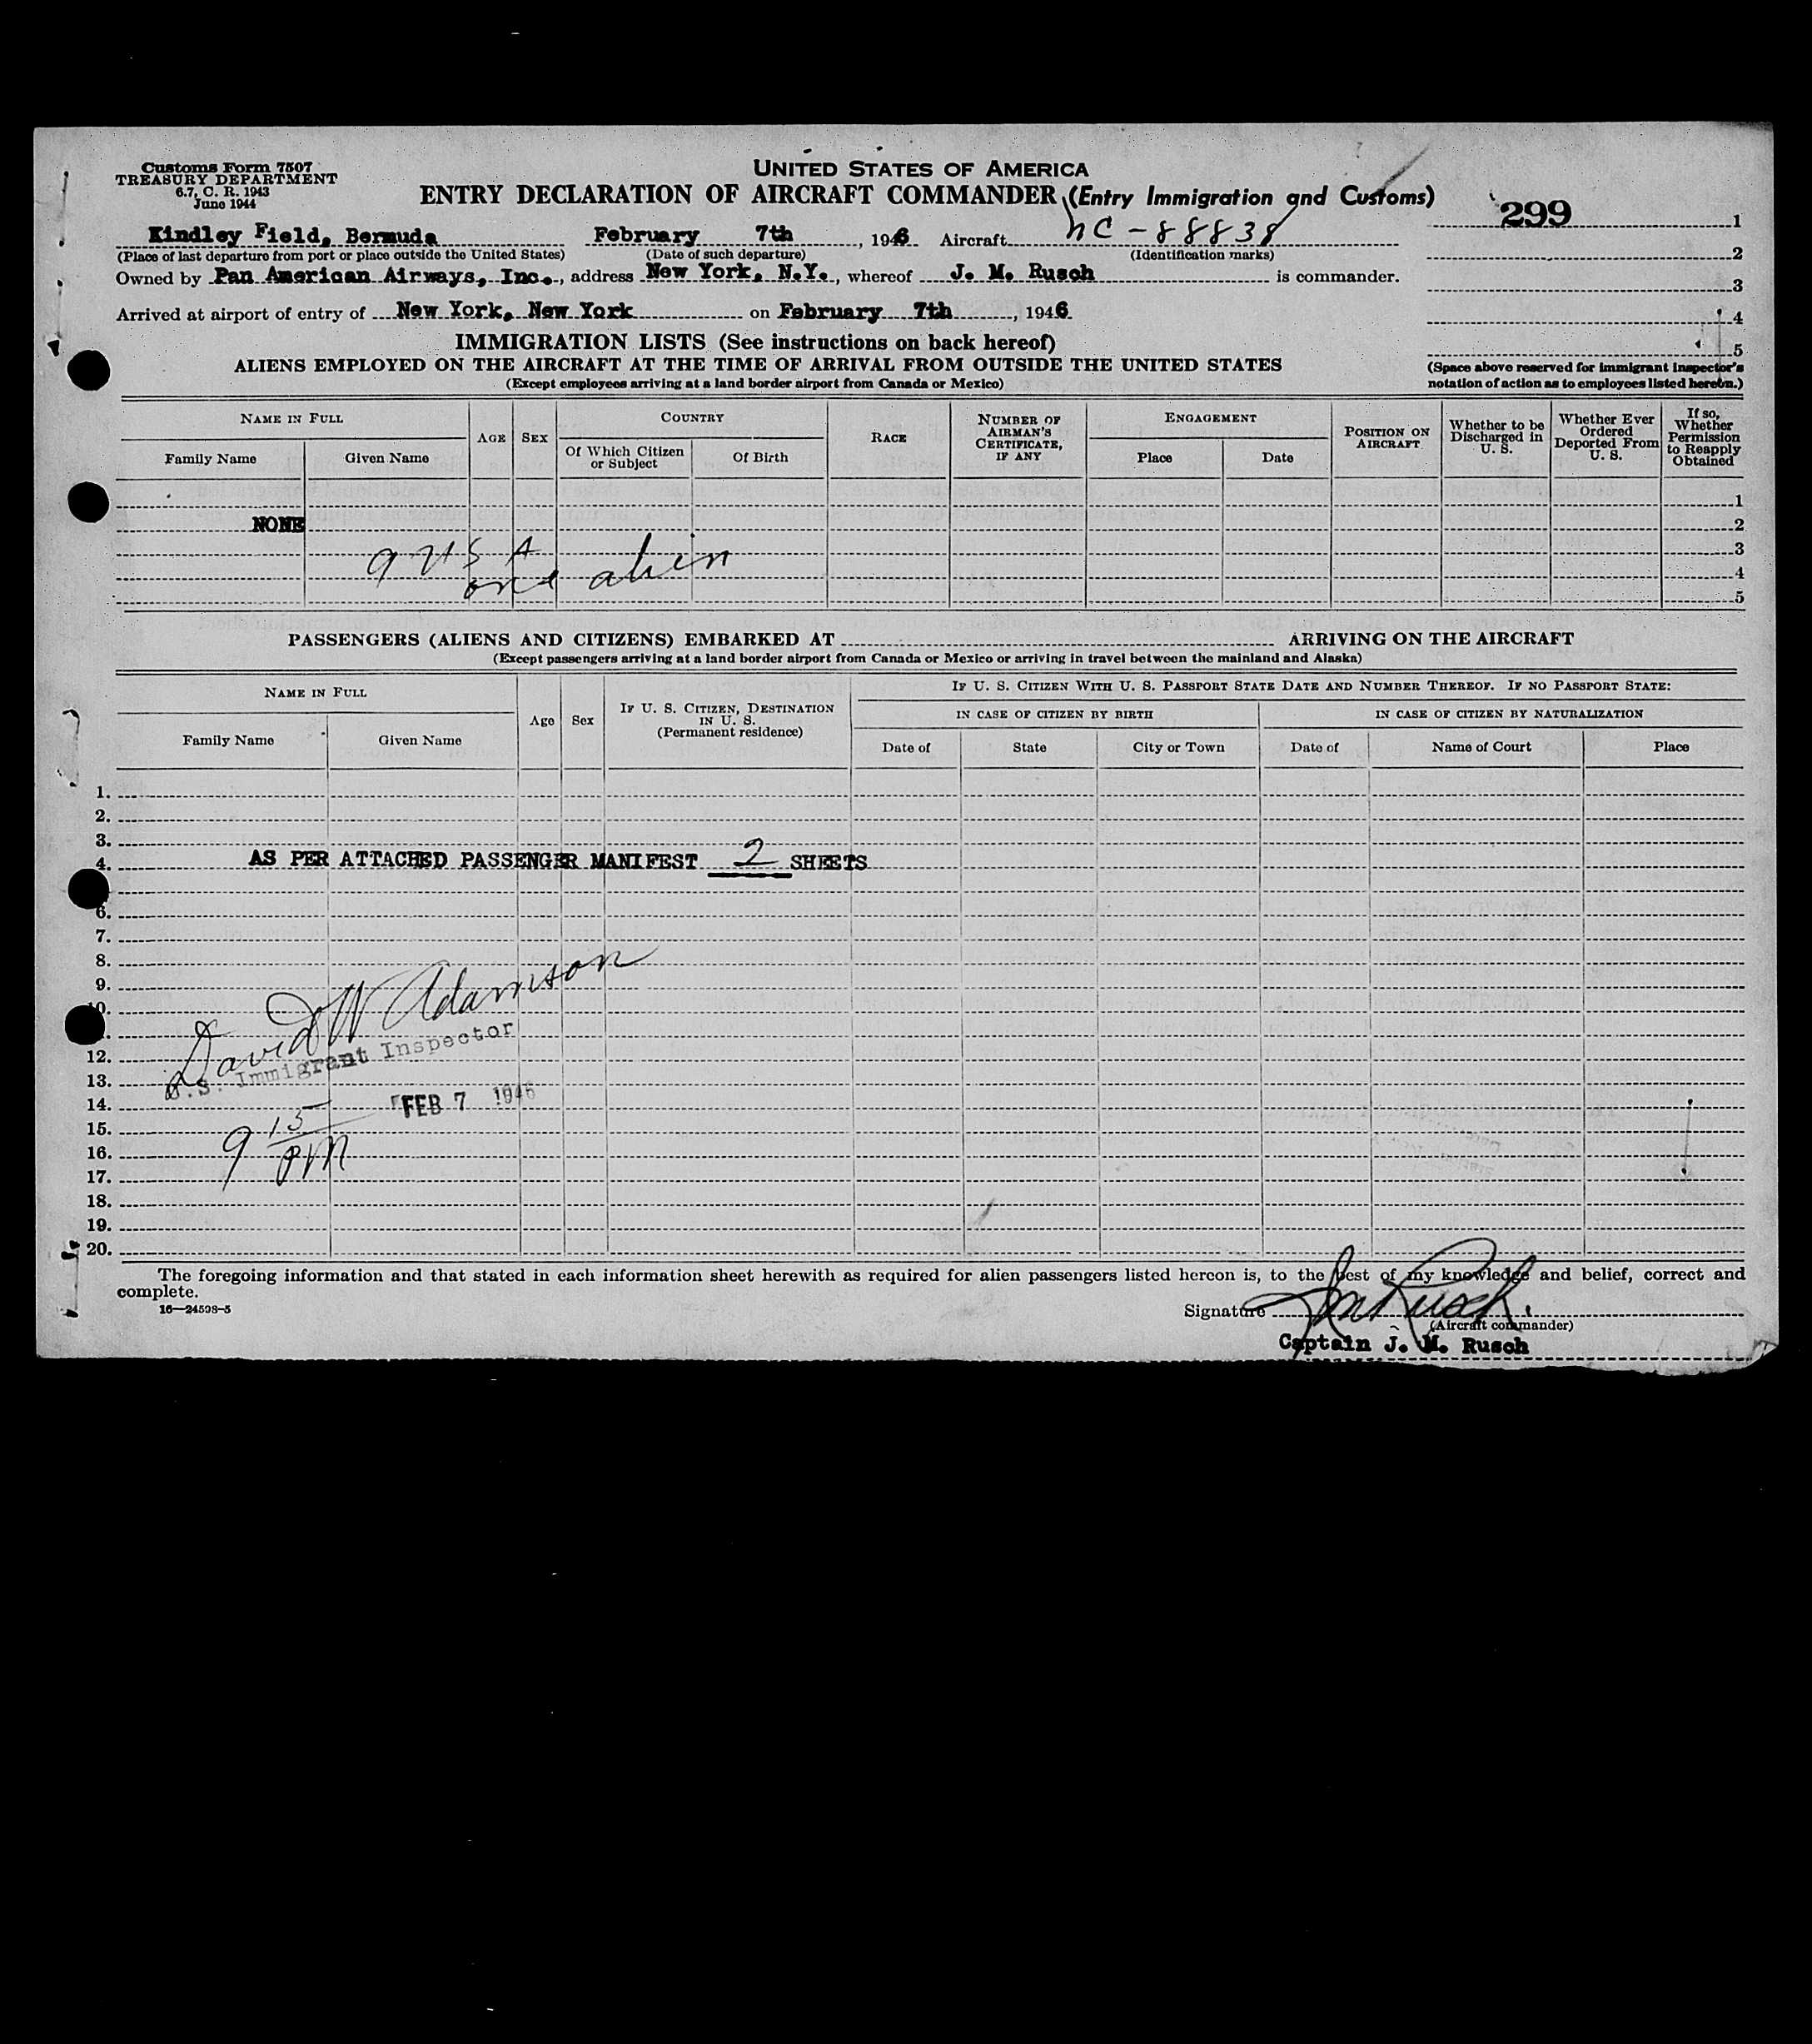 Customs Form 7507
TREASURY DEPARTMENT
6.7, C. R. 1943
June 1944
UNITED STATES OF AMERICA
ENTRY DECLARATION OF AIRCRAFT COMMANDER (Entry Immigration and Customs)
299
Kindley Field, Bermuda February 7th, 1946 Aircraft NC-88838
(Place of last departure from port or place outside the United States) (Date of such departure) (Identification marks)
Owned by Pan American Airways, Inc., address New York, N.Y., whereof J. M. Rusch is commander.
Arrived at airport of entry of New York, New York on February 7th, 1946
1
2
3
4
5
IMMIGRATION LISTS (See instructions on back hereof)
ALIENS EMPLOYED ON THE AIRCRAFT AT THE TIME OF ARRIVAL FROM OUTSIDE THE UNITED STATES
(Except employees arriving at a land border airport from Canada or Mexico)
(Space above reserved for immigrant inspector's
notation of action as to employees listed hereon.)
NAME IN FULL
Family Name
Given Name
AGE
SEX
COUNTRY
Of Which Citizen
or Subject
Of Birth
RACE
NUMBER OF
AIRMAN'S
CERTIFICATE,
IF ANY
ENGAGEMENT
Place
Date
POSITION ON
AIRCRAFT
Whether to be
Discharged in
U. S.
Whether Ever
Ordered
Deported From
U. S.
If so,
Whether
Permission
to Reapply
Obtained
1
NONE 2
9 U S A 3
one alien 4
5
PASSENGERS (ALIENS AND CITIZENS) EMBARKED AT ARRIVING ON THE AIRCRAFT
(Except passengers arriving at a land border airport from Canada or Mexico or arriving in travel between the mainland and Alaska)
NAME IN FULL
Family Name
Given Name
Age
Sex
IF U. S. CITIZEN, DESTINATION
IN U. S.
(Permanent residence)
IF U. S. CITIZEN WITH U. S. PASSPORT STATE DATE AND NUMBER THEREOF. IF NO PASSPORT STATE:
IN CASE OF CITIZEN BY BIRTH
IN CASE OF CITIZEN BY NATURALIZATION
Date of
State
City or Town
Date of
Name of Court
Place
1.
2.
3.
4. AS PER ATTACHED PASSENGER MANIFEST 2 SHEETS
6.
7.
8.
9.
10.
David W Adamson
12.
U.S. Immigrant Inspector
13.
14. FEB 7 1946
15. 9 15
16. PM
17.
18.
19.
20.
The foregoing information and that stated in each information sheet herewith as required for alien passengers listed hereon is, to the best of my knowledge and belief, correct and
complete.
16—24598-5
Signature J M Rusch.
(Aircraft commander)
Captain J. M. Rusch